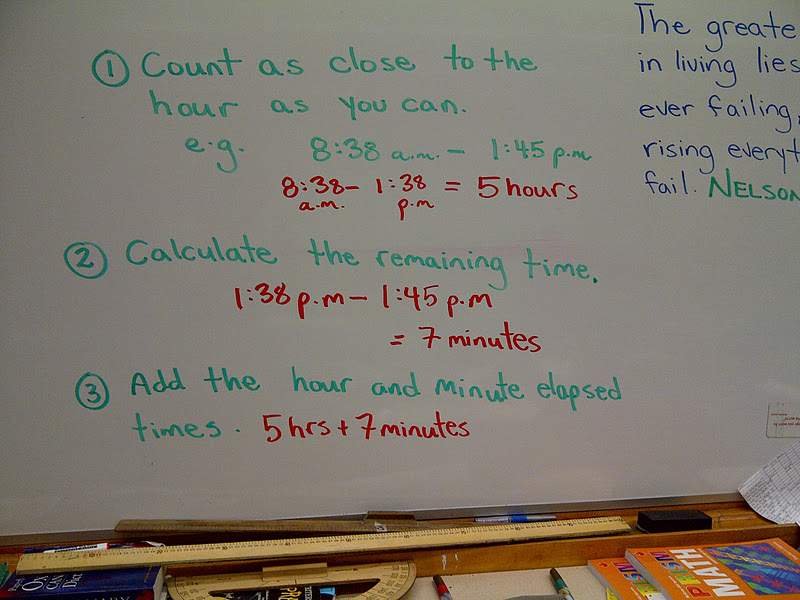 ① Count as close to the
hour as you can.
e.g. 8:38 a.m. – 1:45 p.m.
8:38 – 1:38 = 5 hours
a.m. p.m
② Calculate the remaining time.
1:38 p.m – 1:45 p.m
= 7 minutes
③ Add the hour and minute elapsed
times. 5 hrs + 7 minutes
The greate
in living lies
ever failing,
rising everyt
fail. NELSON
MATH